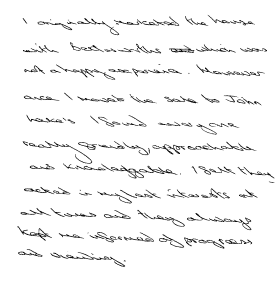 I originally marketed the house
with Bettsworths which was
not a happy experience. However
once I moved the sale to John
Lake's I found everyone
really friendly, approachable
and knowledgable. I felt they
acted in my best interests at
all times and they always
kept me informed of progress
and viewings.